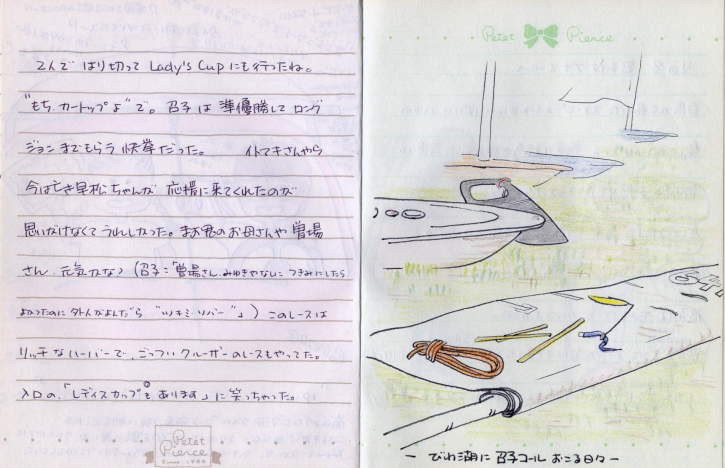 2人で はり切って Lady's Cup にも行ったね。
"もち カートップよ" で。 召子 は 準優勝して ロング
ジョン までもらう 快挙だった。 イトマキさんやら
今は亡き早松ちゃんが 応援に来てくれたのが
思いがけなくて うれしかった。 まお君のお母さんや 曽場
さん 元気かな? (召子:「曽場さん、みゆきやなしに つきみにしたら
よかったのに 外人がよんだら "ツキミ・ソバー"」) このレースは
リッチなハーバーで、ごっつい クルーザーのレースもやってた。
入口の、「レディスカップもあります」に 笑っちゃった。
Petit Pierce
Petit Pierce
ー びわ湖に 召子コール おこる日々 ー